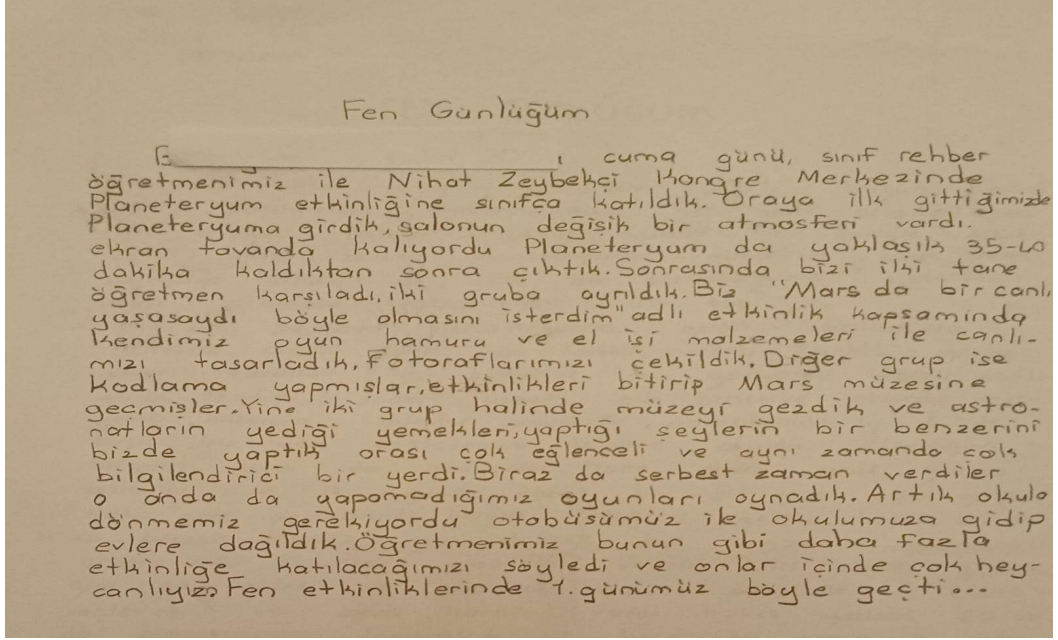 Fen Günlüğüm
cuma günü, sınıf rehber
öğretmenimiz ile Nihat Zeybekçi Kongre Merkezinde
Planeteryum etkinliğine sınıfça katıldık. Oraya ilk gittiğimizde
Planeteryuma girdik, salonun değişik bir atmosferi vardı.
ekran tavanda kalıyordu Planeteryum da yaklaşık 35-40
dakika kaldıktan sonra çıktık. Sonrasında bizi iki tane
öğretmen karşıladı, iki gruba ayrıldık. Biz "Mars da bir canlı
yaşasaydı böyle olmasını isterdim" adlı etkinlik kapsamında
kendimiz oyun hamuru ve el işi malzemeleri ile canlı-
mızı tasarladık, fotoraflarımızı çekildik. Diğer grup ise
kodlama yapmışlar, etkinlikleri bitirip Mars müzesine
geçmişler. Yine iki grup halinde müzeyi gezdik ve astro-
natların yediği yemekleri, yaptığı şeylerin bir benzerini
bizde yaptık orası çok eğlenceli ve aynı zamanda çok
bilgilendirici bir yerdi. Biraz da serbest zaman verdiler
o anda da yapamadığımız oyunları oynadık. Artık okula
dönmemiz gerekiyordu otobüsümüz ile okulumuza gidip
evlere dağıldık. Öğretmenimiz bunun gibi daha fazla
etkinliğe katılacağımızı söyledi ve onlar içinde çok hey-
canlıyız. Fen etkinliklerinde 1. günümüz böyle geçti...